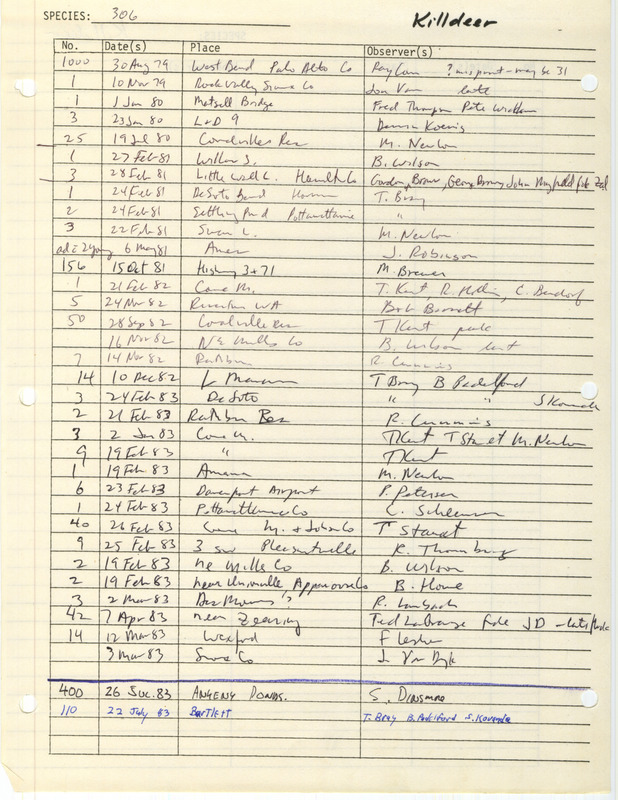 SPECIES: 306 Killdeer
No. Date(s) Place Observer(s)
1000 30 Aug 79 West Bend Palo Alto Co Ray Cum ? misprint - may be 31
1 10 Nov 79 Rock Valley Sioux Co Jon Van late
1 1 Jan 80 Metsell Bridge Fred Thompson Pete
3 23 Jan 80 L+D 9 Dennis Koenig
25 19 Jul 80 Coralville Res M. Newlon
1 27 Feb 81 Willow S. B. Wilson
3 28 Feb 81 Little Wall L. Hamilton Co Gordon Brown, George Brown, John
1 24 Feb 81 DeSoto Bend T. Bray
2 24 Feb 81 Settling Pond Pottawattamie "
3 22 Feb 81 Swan L. M. Newlon
ad + 2 young 6 May 81 Ames J. Robinson
156 15 Oct 81 Highway 3+71 M. Brewer
1 21 Feb 82 Cone M. T. Kent, R. Hollis, C. Bendorf
5 24 Mar 82 Riverton WA Bob Barrett
50 28 Sep 82 Coralville Res T Kent peak
16 Nov 82 NE Mills Co B. Wilson last
7 14 Nov 82 Rathbun R. Cummins
14 10 Dec 82 L Manawa T Bray B Padelford
3 24 Feb 83 DeSoto " " S Kovanda
2 21 Feb 83 Rathbun Res R. Cummins
3 2 Jan 83 Cone M. T Kent T Staudt M. Newlon
9 19 Feb 83 " T Kent
1 19 Feb 83 Amana M. Newlon
6 23 Feb 83 Davenport Airport P. Petersen
1 24 Feb 83 Pottawattamie Co C. Schleuman
40 26 Feb 83 Cone M. + Johnson Co T Staudt
9 25 Feb 83 3 sw Pleasantville R. Thornburg
2 19 Feb 83 ne Mills Co B. Wilson
2 19 Feb 83 near Unionville Appanoose Co B. Howe
3 2 Mar 83 Des Moines R. Lambach
42 7 Apr 83 near Zearing Ted LaGrange fide JD
14 12 Mar 83 Wexford F Lesher
3 Mar 83 Sioux Co J. Van Dyk
400 26 Jul. 83 ANKENY PONDS. S. DINSMORE
110 22 July 83 Bartlett T. Bray B. Padelford S. Kovanda